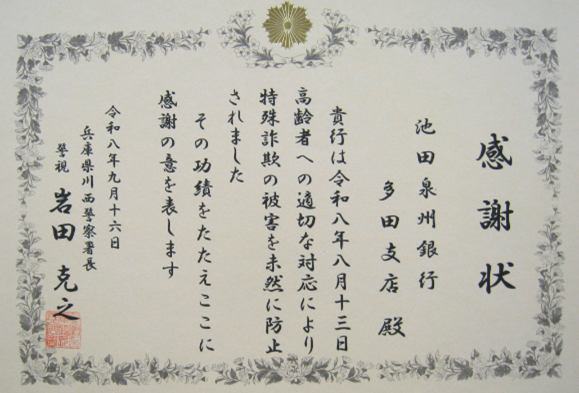 感謝状
池田泉州銀行
多田支店殿
貴行は令和八年八月十三日
高齢者への適切な対応により
特殊詐欺の被害を未然に防止
されました
その功績をたたえここに
感謝の意を表します
令和八年九月十六日
兵庫県川西警察署長
警視 岩田克之